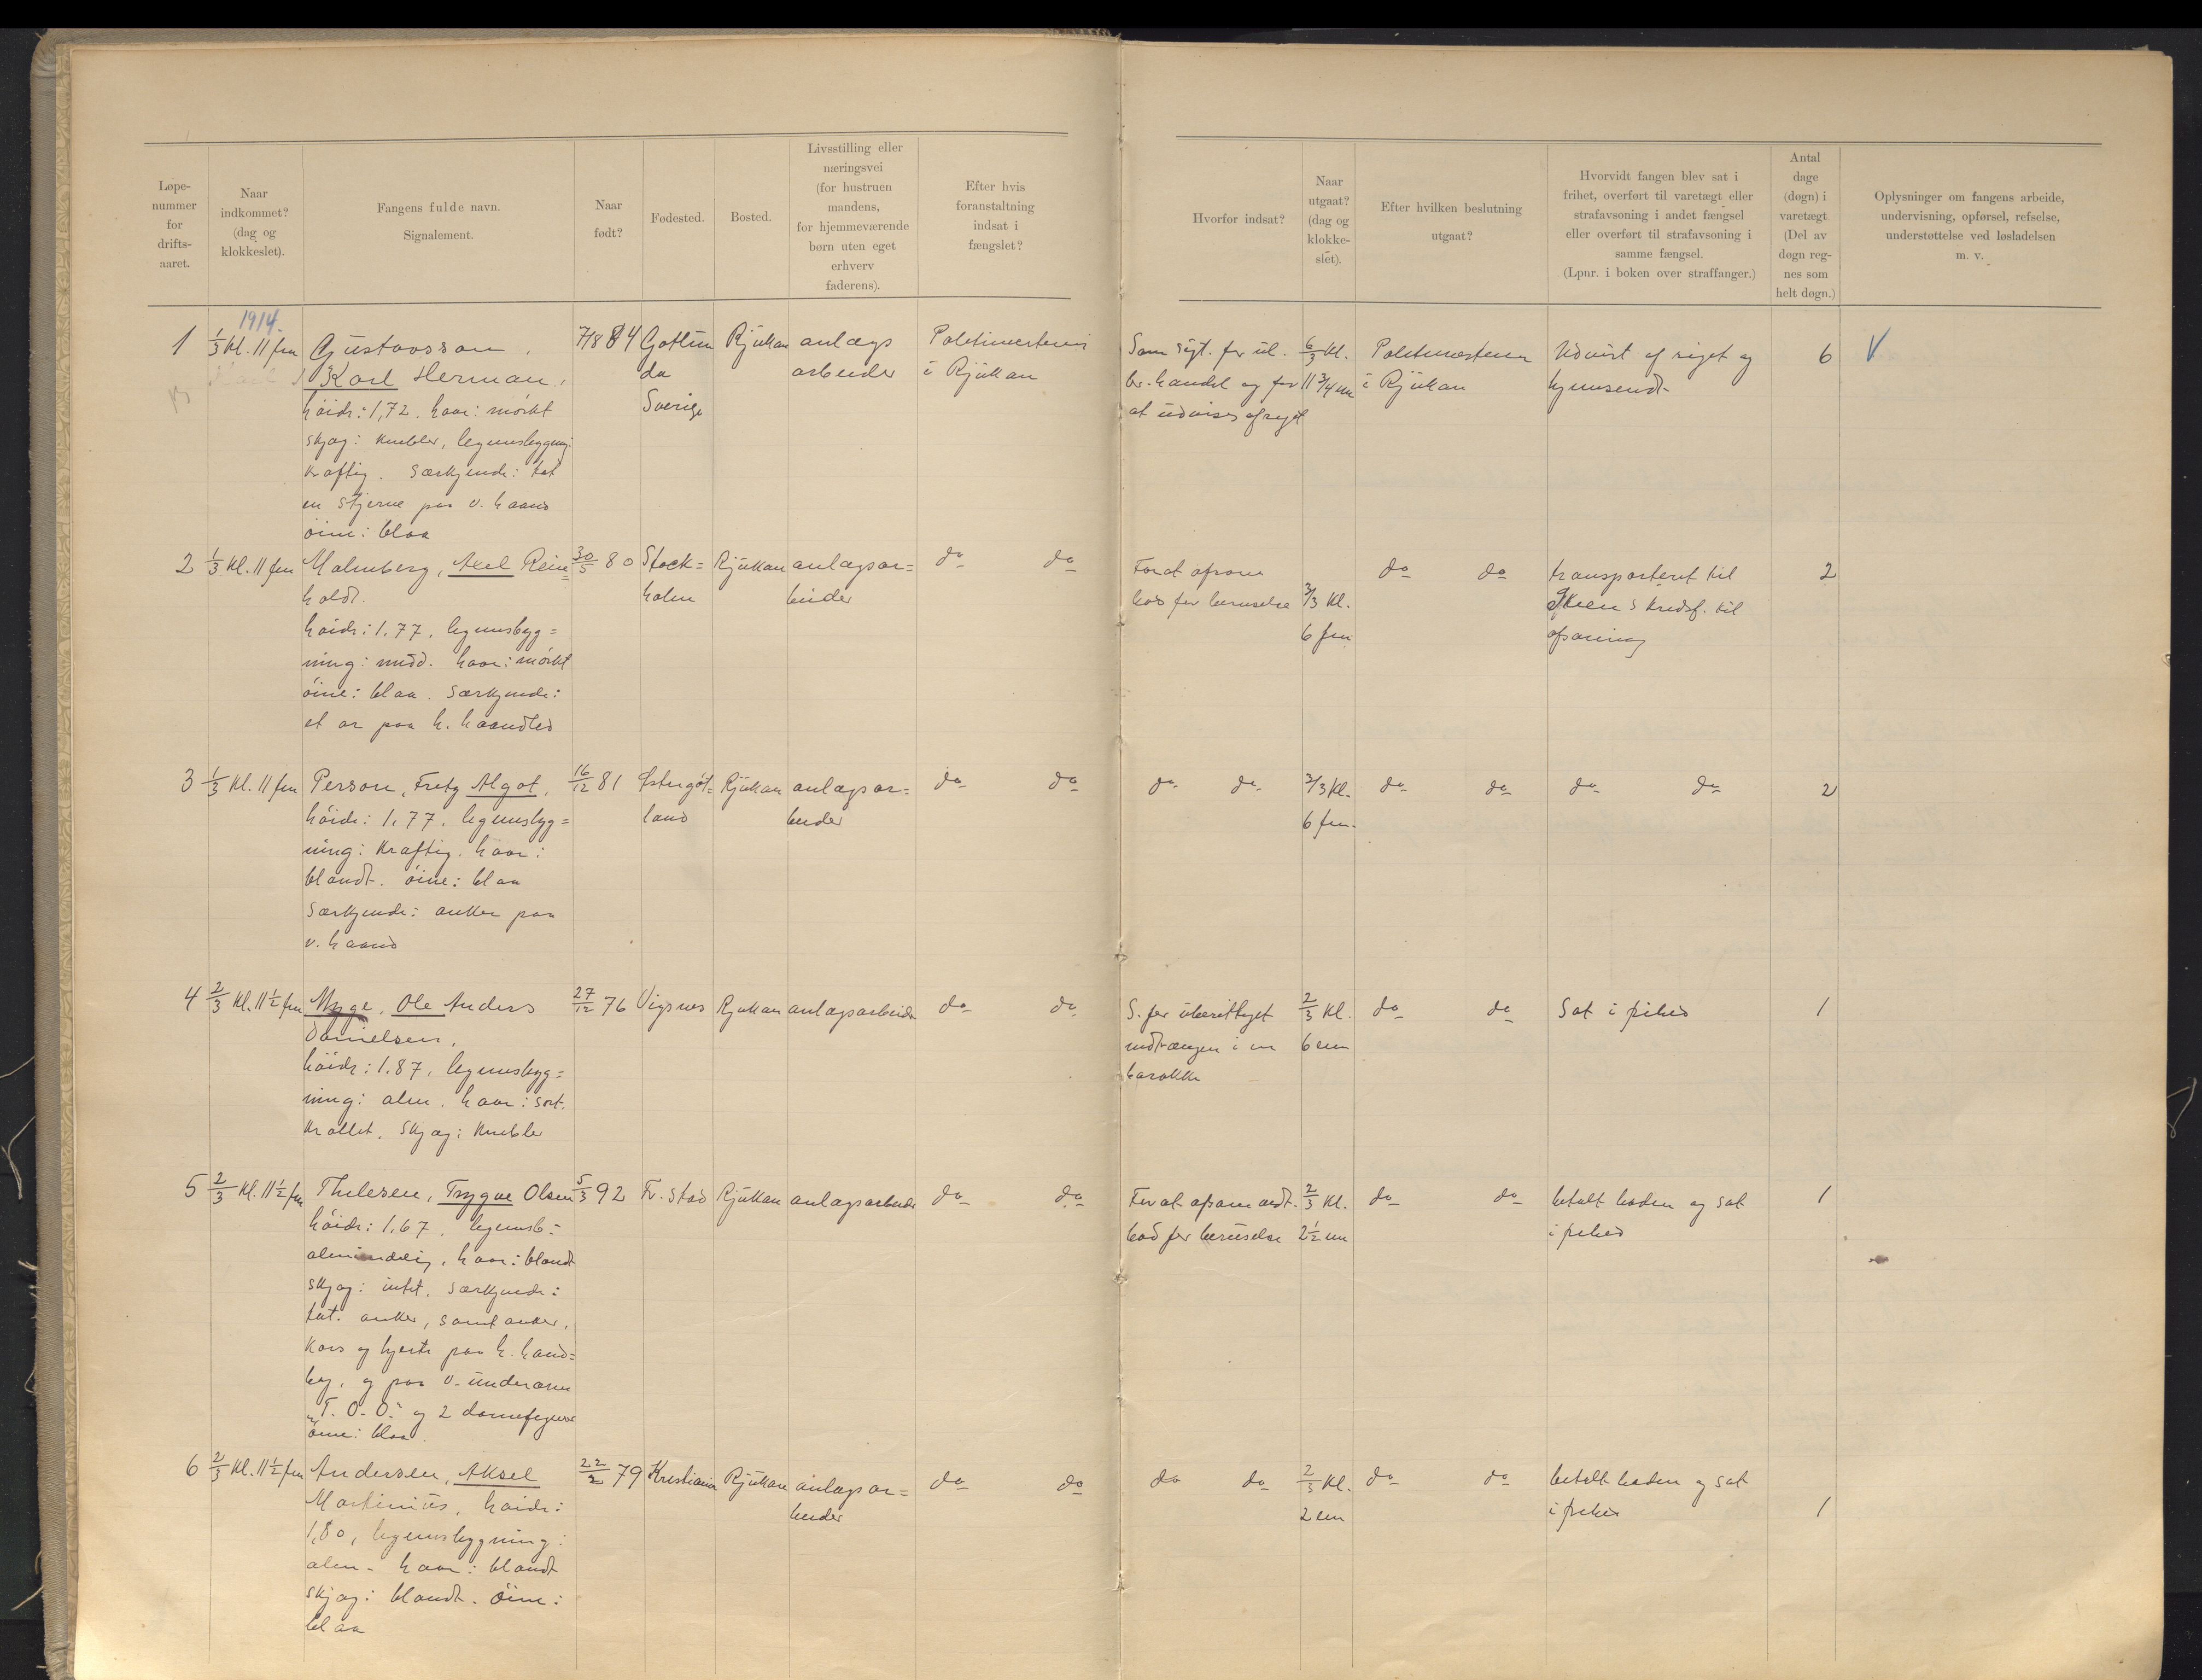 Løpe-
nummer
for
drifts-
aaret.
Naar
indkommet?
(dag og
klokkeslet).
Fangens fulde navn.
Signalement.
Naar
født?
Fødested.
Bosted.
Livsstilling eller
næringsvei
(for hustruen
mandens,
for hjemmeværende
børn uten eget
erhverv
faderens).
Efter hvis
foranstaltning
indsat i
fængslet?
Hvorfor indsat?
Naar
utgaat?
(dag og
klokke-
slet).
Efter hvilken beslutning
utgaat?
Hvorvidt fangen blev sat i
frihet, overført til varetægt eller
strafavsoning i andet fængsel
eller overført til strafavsoning i
samme fængsel.
(Lpnr. i boken over straffanger.)
Antal
dage
(døgn) i
varetægt
(Del av
døgn reg-
nes som
helt døgn.)
Oplysninger om fangens arbeide,
undervisning, opførsel, refselse,
understøttelse ved løsladelsen
m. v.
1914.
1
1/3 Kl. 11 fm
Gustavsson,
Karl Herman,
høide: 1,72. haar: mørkt
skjæg: knebler, legemsbygning:
kraftig. Særkjende: tat
en stjerne paa v. haand
øine: blaa
7/8 84
Gottlun
da
Sverige
Rjukan
anlægs
arbeider
Politimesteren
i Rjukan
Som sigt. for ul.
br. handel og for
at udvises af riget
6/3 Kl.
11 3/4 em
Politimesteren
i Rjukan
Udvist af riget og
hjemsendt
6
V
2
1/3 Kl. 11 fm
Malmberg, Axel Rein=
holdt.
høide: 1.77, legemsbyg=
ning: midd. haar: mørkt
øine: blaa. Særkjende:
et ar paa h. haandled
30/5 80
Stock=
holm
Rjukan
anlægsar=
beider
do do
For at afsone
bod for beruselse
3/3 Kl.
6 fm
do do
transporteret til
Skiens kredsf. til
afsoning
2
3
1/3 Kl. 11 fm
Person, Fretz Algot,
høide: 1,77, legemsbyg=
ning: kraftig. haar:
blondt. øine: blaa
Særkjende: anker paa
v. haand
16/12 81
Østergöt=
land
Rjukan
anlægsar=
beider
do do
do do
3/3 Kl.
6 fm.
do do
do do
2
4
2/3 Kl. 11 1/2 fm
Myge, Ole Anders
Danielsen,
høide: 1.87, legemsbyg=
ning: alm. haar: sort.
krøllet. Skjæg: knebler
27/12 76
Vigsnes
Rjukan
anlægsarbeider
do do
S. for uberettiget
indtrængen i en
barakke
2/3 Kl.
6 em
do do
Sat i frihed
1
5
2/3 Kl. 11 1/2 fm
Thelesen, Trygve Olsen
høide: 1.67, legemsb=
almindelig, haar: blondt
skjæg: intet. Særkjende:
tat. anker, samt anker,
kors og hjerte paa h. haand=
bag, og paa v. underarm
"T. O. O." og 2 damefigurer
øine: blaa.
5/3 92
Fr. stad
Rjukan
anlægsarbeider
do do
For at afsone ardt.
bod for beruselse
2/3 Kl.
2 1/2 em
do do
betalt boden og sat
i frihed
1
6
2/3 Kl. 11 1/2 fm
Andersen, Aksel
Martinius, høide:
1,80, legemsbygning:
alm. haar: blondt
skjæg: blondt. Øine:
blaa
22/2 79
Kristiania
Rjukan
anlægsar=
beider
do do
do do
2/3 Kl.
2 em
do do
betalt boden og sat
i frihed
1